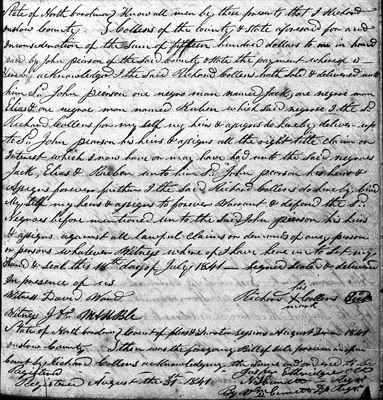 State of North Carolina } Know all men by these presents that I Richard
onslow County } Collens of the county & state aforesaid for and
in consideration of the sum of fifteen hundred dollars to me in hand
paid by John pearson of the said County & state the payment whereof is
hereby acknowledged I the said Richard Collens hath sold & delivered unto
him Sd. John pearson one negro man named Jack, one negro man
Elias & one negroe man named Reuben which said negroes I the Sd.
Richard Collens for my self my heirs & assigns do hereby deliver up
to Sd. John pearson his heirs & assigns all the right title claim or
Interest which I now have or may have had unto the said negroes
Jack, Elias & Reuben unto him Sd. John pearson his heirs &
assigns forever further I the said Richard Collens do hereby bind
My self my heirs & assigns to forever Warrant & defend the Sd.
Negroes before mentioned unto the said John pearson his heirs
& assigns against all lawful claims or demands of any person
or persons whatever Witness where of I have here unto set my
hand & seal this 16th day of July 1841 — signed sealed & delivered
in presence of us
his
Witness David Ward Richard X Collens Seal
mark
Witness
State of North Carolina Court of pleas & Quarter Sessions August Term 1841
onslow County } then was the foregoing Bill of Sale proven in open
Court by Richard Collens acknowledging the same and ordered to be
Registered
Registered August the 31st 1841